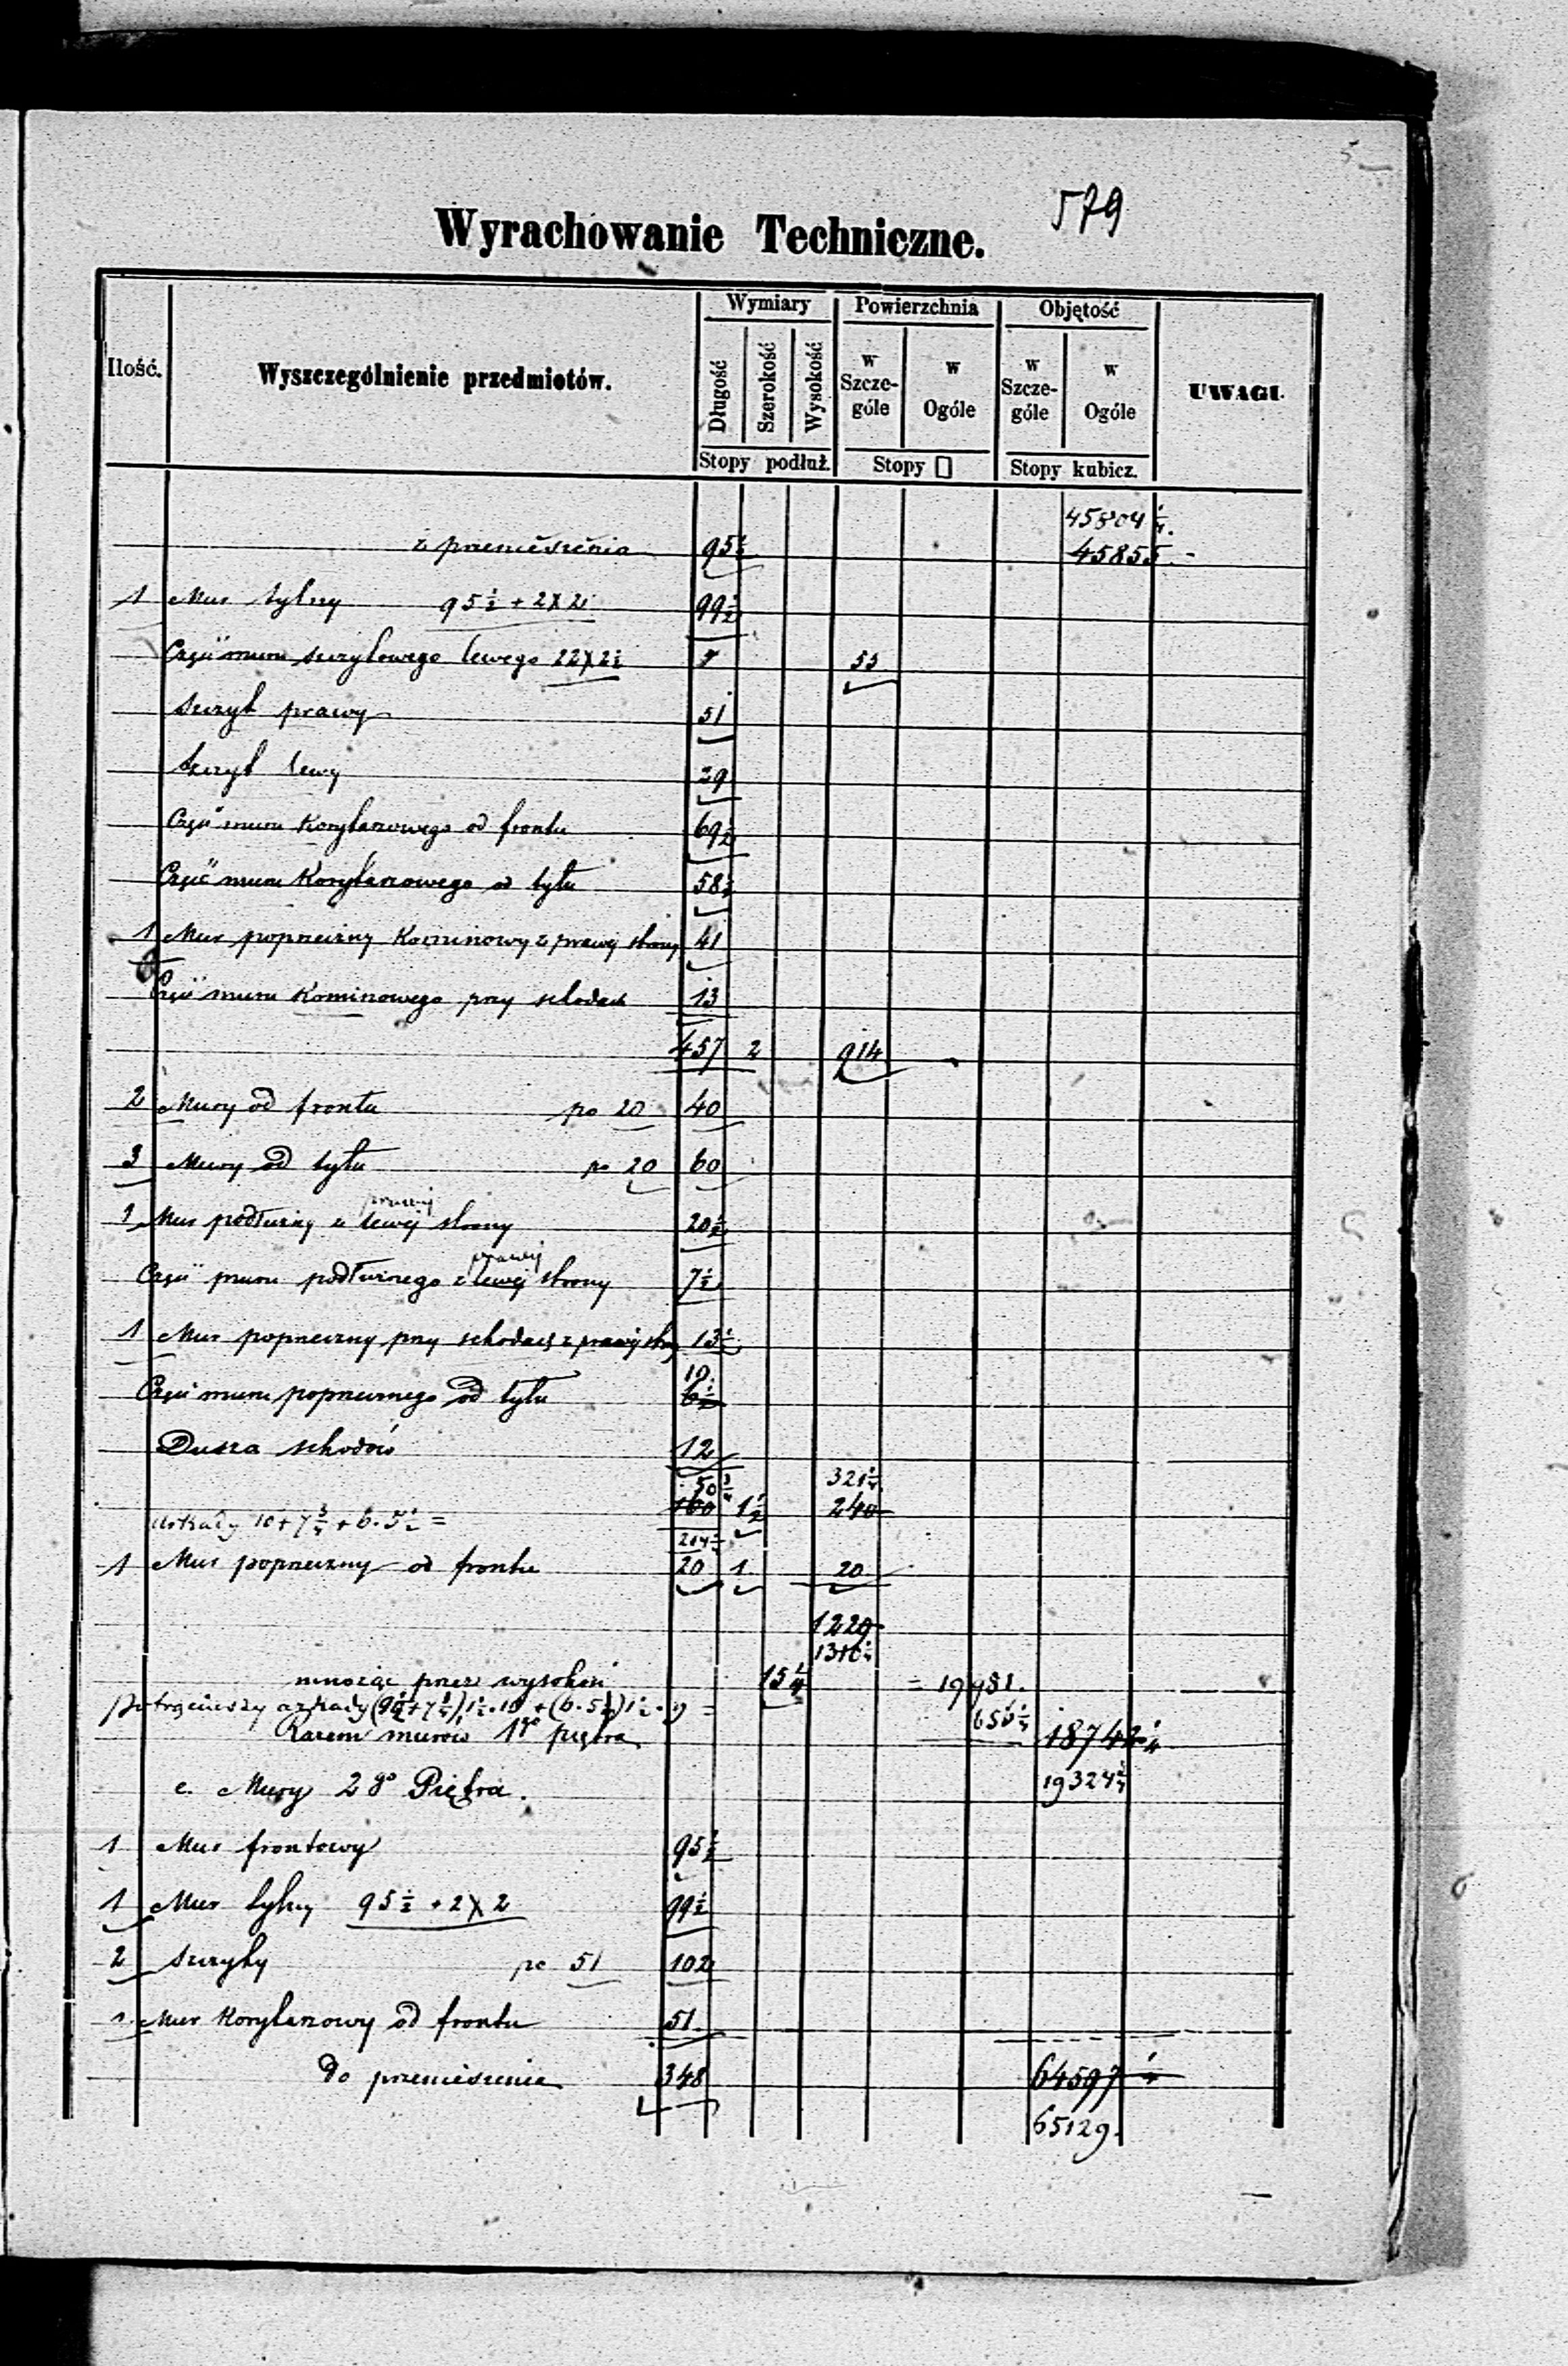 579
Wyrachowanie Techniczne.
Ilość. Wyszczególnienie przedmiotów. Wymiary Powierzchnia Objętość UWAGI.
Długość Szerokość Wysokość w Szczególe w Ogóle w Szczególe w Ogóle
Stopy podłuż. Stopy □ Stopy kubicz.
45804 1/4.
z przeniesienia 95 1/2 45855.-
1 Mur tylny 95 1/2 + 2X2 99 1/2
Część muru szczytowego lewego 22X2 1/2 55
Szczyt prawy 51
Szczyt lewy 29
Część muru Korytarzowego od frontu 69 1/2
Część muru Korytarzowego od tyłu 58 1/2
1 Mur poprzeczny Kominowy z prawej strony 41
Część muru Kominowego przy schodach 13
457 2 914
2 Mury od frontu po 20 40
3 Mury od tyłu po 20 60
prawej
1 Mur podłużny z lewej strony 20 1/2
prawej
Część muru podłużnego z lewej strony 7 1/2
1 Mur poprzeczny przy schodach z prawej strony 13 1/2
10
Część muru poprzecznego od tyłu 6 1/2
Dusza schodów 12
50 3/4 321 1/4
160 1 1/2 240
arkady 10+7 3/4+6.5 1/2 =
214 1/4
1 Mur poprzeczny od frontu 20 1 20
1229
1310 1/4
mnożąc przez wysokość 15 1/4 = 19981.
Potrąciwszy arkady
656 1/4
Razem murów 1go piętra 18742 1/4
e. Mury 2go Piętra. 19324 1/4
1 Mur frontowy 95 1/2
1 Mur tylny 95 1/2 + 2X2 99 1/2
2 Szczyty po 51 102
1 Mur Korytarzowy od frontu 51
Do przeniesienia 348 64597 1/4
65129.